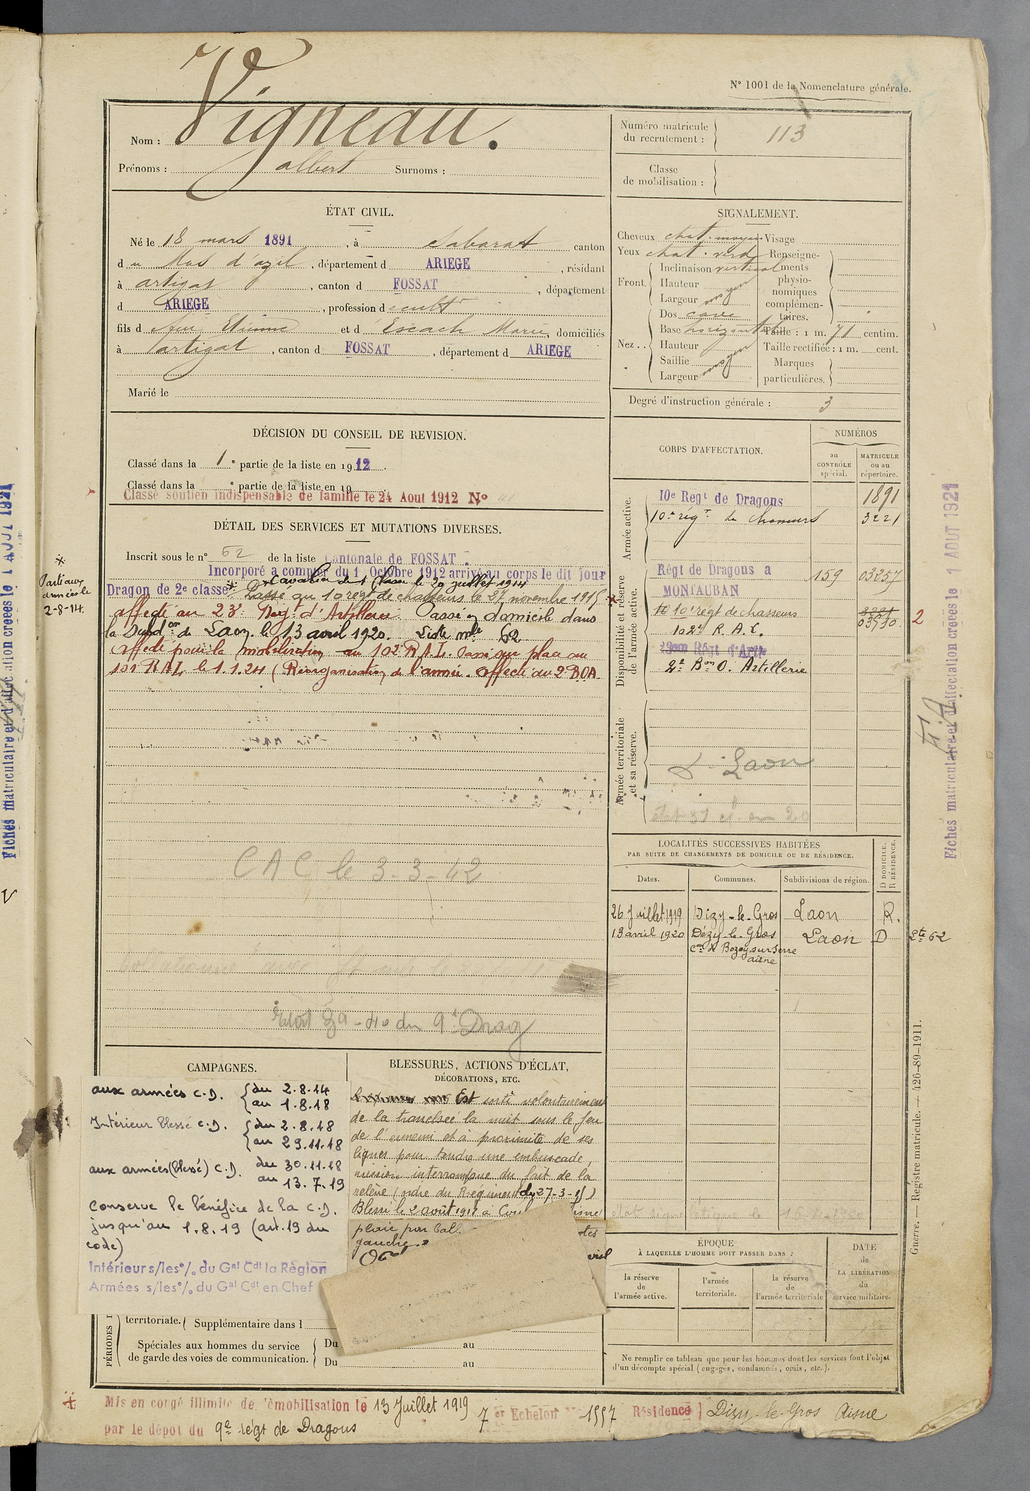 N° 1001 de la Nomenclature générale.
Nom : Vigneau.
Prénoms : Albert Surnoms :
Numéro matricule du recrutement : 113
Classe de mobilisation :
ÉTAT CIVIL.
Né le 18 mars 1891, à Sabarat canton
du Mas d'azil, département d ARIEGE, résidant
à artigat, canton d FOSSAT, département
d ARIEGE, profession d
fils d Etienne et d Escach Marie, domiciliés
à l'artigat, canton d FOSSAT, département d ARIEGE
Marié le
SIGNALEMENT.
Cheveux chat. moyen
Yeux chat. verd
Front. Inclinaison vertical
Hauteur
Largeur moyen
Nez.. Dos cave
Base horizontal
Hauteur
Saillie moyen
Largeur
Visage
Renseignements physionomiques complémentaires.
Taille : 1 m. 71 centim.
Taille rectifiée : 1 m. cent.
Marques particulières.
Degré d'instruction générale : 3
DÉCISION DU CONSEIL DE REVISION.
Classé dans la 1e partie de la liste en 1912.
Classé dans la e partie de la liste en 19
Classé soutien indispensable de famille le 24 Aout 1912 N°
DÉTAIL DES SERVICES ET MUTATIONS DIVERSES.
Inscrit sous le n° 62 de la liste cantonale de FOSSAT
Incorporé à compter du 1 Octobre 1912 arrivé au corps le dit jour
Dragon de 2e classe. Cavalier de 1e classe le 20 juillet 1914
Passé au 10 régt de chasseurs le 27 novembre 1915
affecté au 23e Régt d'Artillerie Passé en domicile dans
la Subdon de Laon le 13 avril 1920. Liste mle 62
Affecté pour la mobilisation au 102e RAL. Passé sur place au
101 RAL le 1.1.24 (Réorganisation de l'armée. Affecté au 2e BOA.
CAC le 3-3-42
9e Drag
Parti aux armées le 2-8-14
CORPS D'AFFECTATION.
NUMÉROS
au CONTRÔLE spécial.
MATRICULE ou au répertoire.
Armée active.
10e Regt de Dragons 1891
10e régt de chasseurs 3221
Disponibilité et réserve de l'armée active.
Régt de Dragons à MONTAUBAN 159 03257
10e régt de chasseurs
102e R.A.L.
2e Bon O. Artillerie
2
Armée territoriale et sa réserve.
Laon
LOCALITÉS SUCCESSIVES HABITÉES
PAR SUITE DE CHANGEMENTS DE DOMICILE OU DE RÉSIDENCE.
Dates. Communes. Subdivisions de région. D DOMICILE. R RÉSIDENCE.
26 Juillet 1919 Dizy-le-Gros Laon R.
13 avril 1920 Dizy-le-Gros Laon D
con Rozoy-sur-Serre
aisne
Lte 62
CAMPAGNES.
aux armées C.D. du 2.8.14 au 1.8.18
Intérieur Blessé C.D. du 2.8.18 au 29.11.18
aux armées (blessé) C.D. du 30.11.18 au 13.7.19
Conserve le bénéfice de la C.D.
jusqu'au 1.8.19 (art. 13 du
code)
Intérieur s/les o/. du Gal Cdt la Région
Armées s/les o/. du Gal Cdt en Chef
BLESSURES, ACTIONS D'ÉCLAT,
DÉCORATIONS, ETC.
Est sorti volontairement
de la tranchée la nuit sous le feu
de l'ennemi et à proximité de ses
lignes pour tendre une embuscade,
mission interrompue du fait de la
relève (ordre du Régiment du 27-3-18)
Blessé le 2 août 1918 à
plaie par ball
gauche.
PÉRIODES
territoriale. Supplémentaire dans l
Spéciales aux hommes du service
de garde des voies de communication.
Du au
Du au
ÉPOQUE
À LAQUELLE L'HOMME DOIT PASSER DANS :
la réserve de l'armée active.
l'armée territoriale.
la réserve de l'armée territoriale
DATE de LA LIBÉRATION du service militaire.
Ne remplir ce tableau que pour les hommes dont les services font l'objet
d'un décompte spécial (engagés, condamnés, omis, etc.).
Mis en congé illimité de démobilisation le 13 Juillet 1919
par le dépot du 9e régt de Dragons
7er Echelon N° 1557 Résidence Dizy-le-Gros Aisne
Fiches matriculaire et d'affectation créées le 1 AOUT 1921
Fiches matriculaire et d'affectation créées le 1 AOUT 1921
Guerre. — Registre matricule. — 426-89-1911.